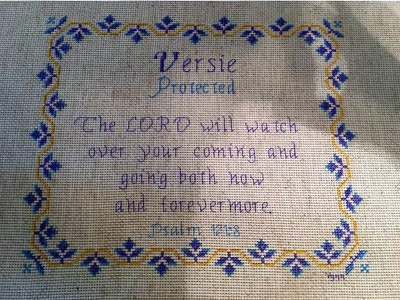 Versie
Protected
The LORD will watch
over your coming and
going both now
and forevermore.
Psalm 121:8